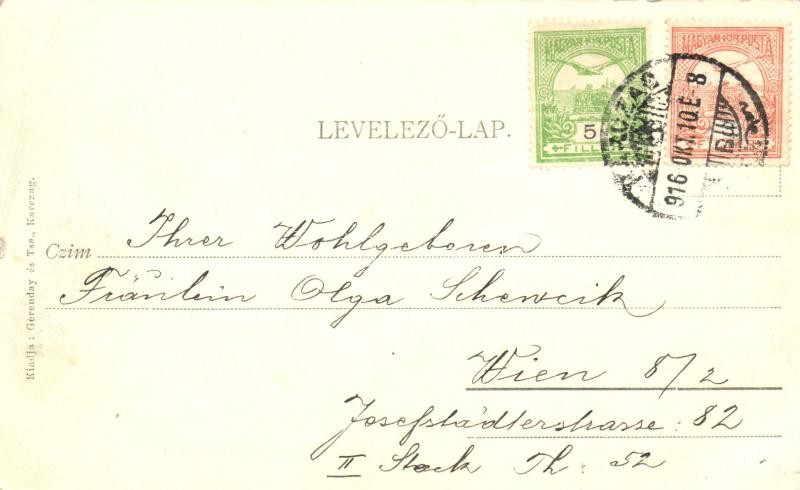 MAGYAR KIR. POSTA
MAGYAR KIR. POSTA
5
FILL
KARCZAG
916 OKT. 10 E-8
LEVELEZŐ-LAP.
Kiadja: Gerenday és Tsa., Karczag.
Czim Ihrer Wohlgeboren
Fräulein Olga Schewcik
Wien 8/2
Josefstädterstrasse: 82
II Stock Th: 52